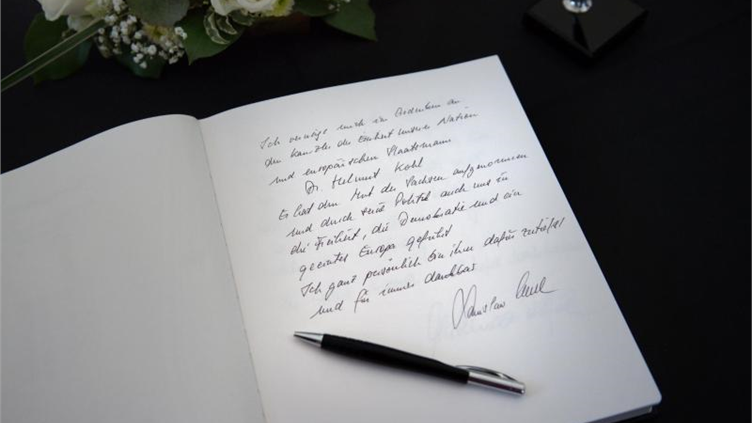 Ich verneige mich im Gedenken an
den Kanzler der Einheit unserer Nation
und europäischen Staatsmann
Dr. Helmut Kohl
Er hat den Mut der Sachsen aufgenommen
und durch seine Politik auch uns in
die Freiheit, die Demokratie und ein
geeintes Europa geführt
Ich ganz persönlich bin ihm dafür zutiefst
und für immer dankbar
Stanislaw